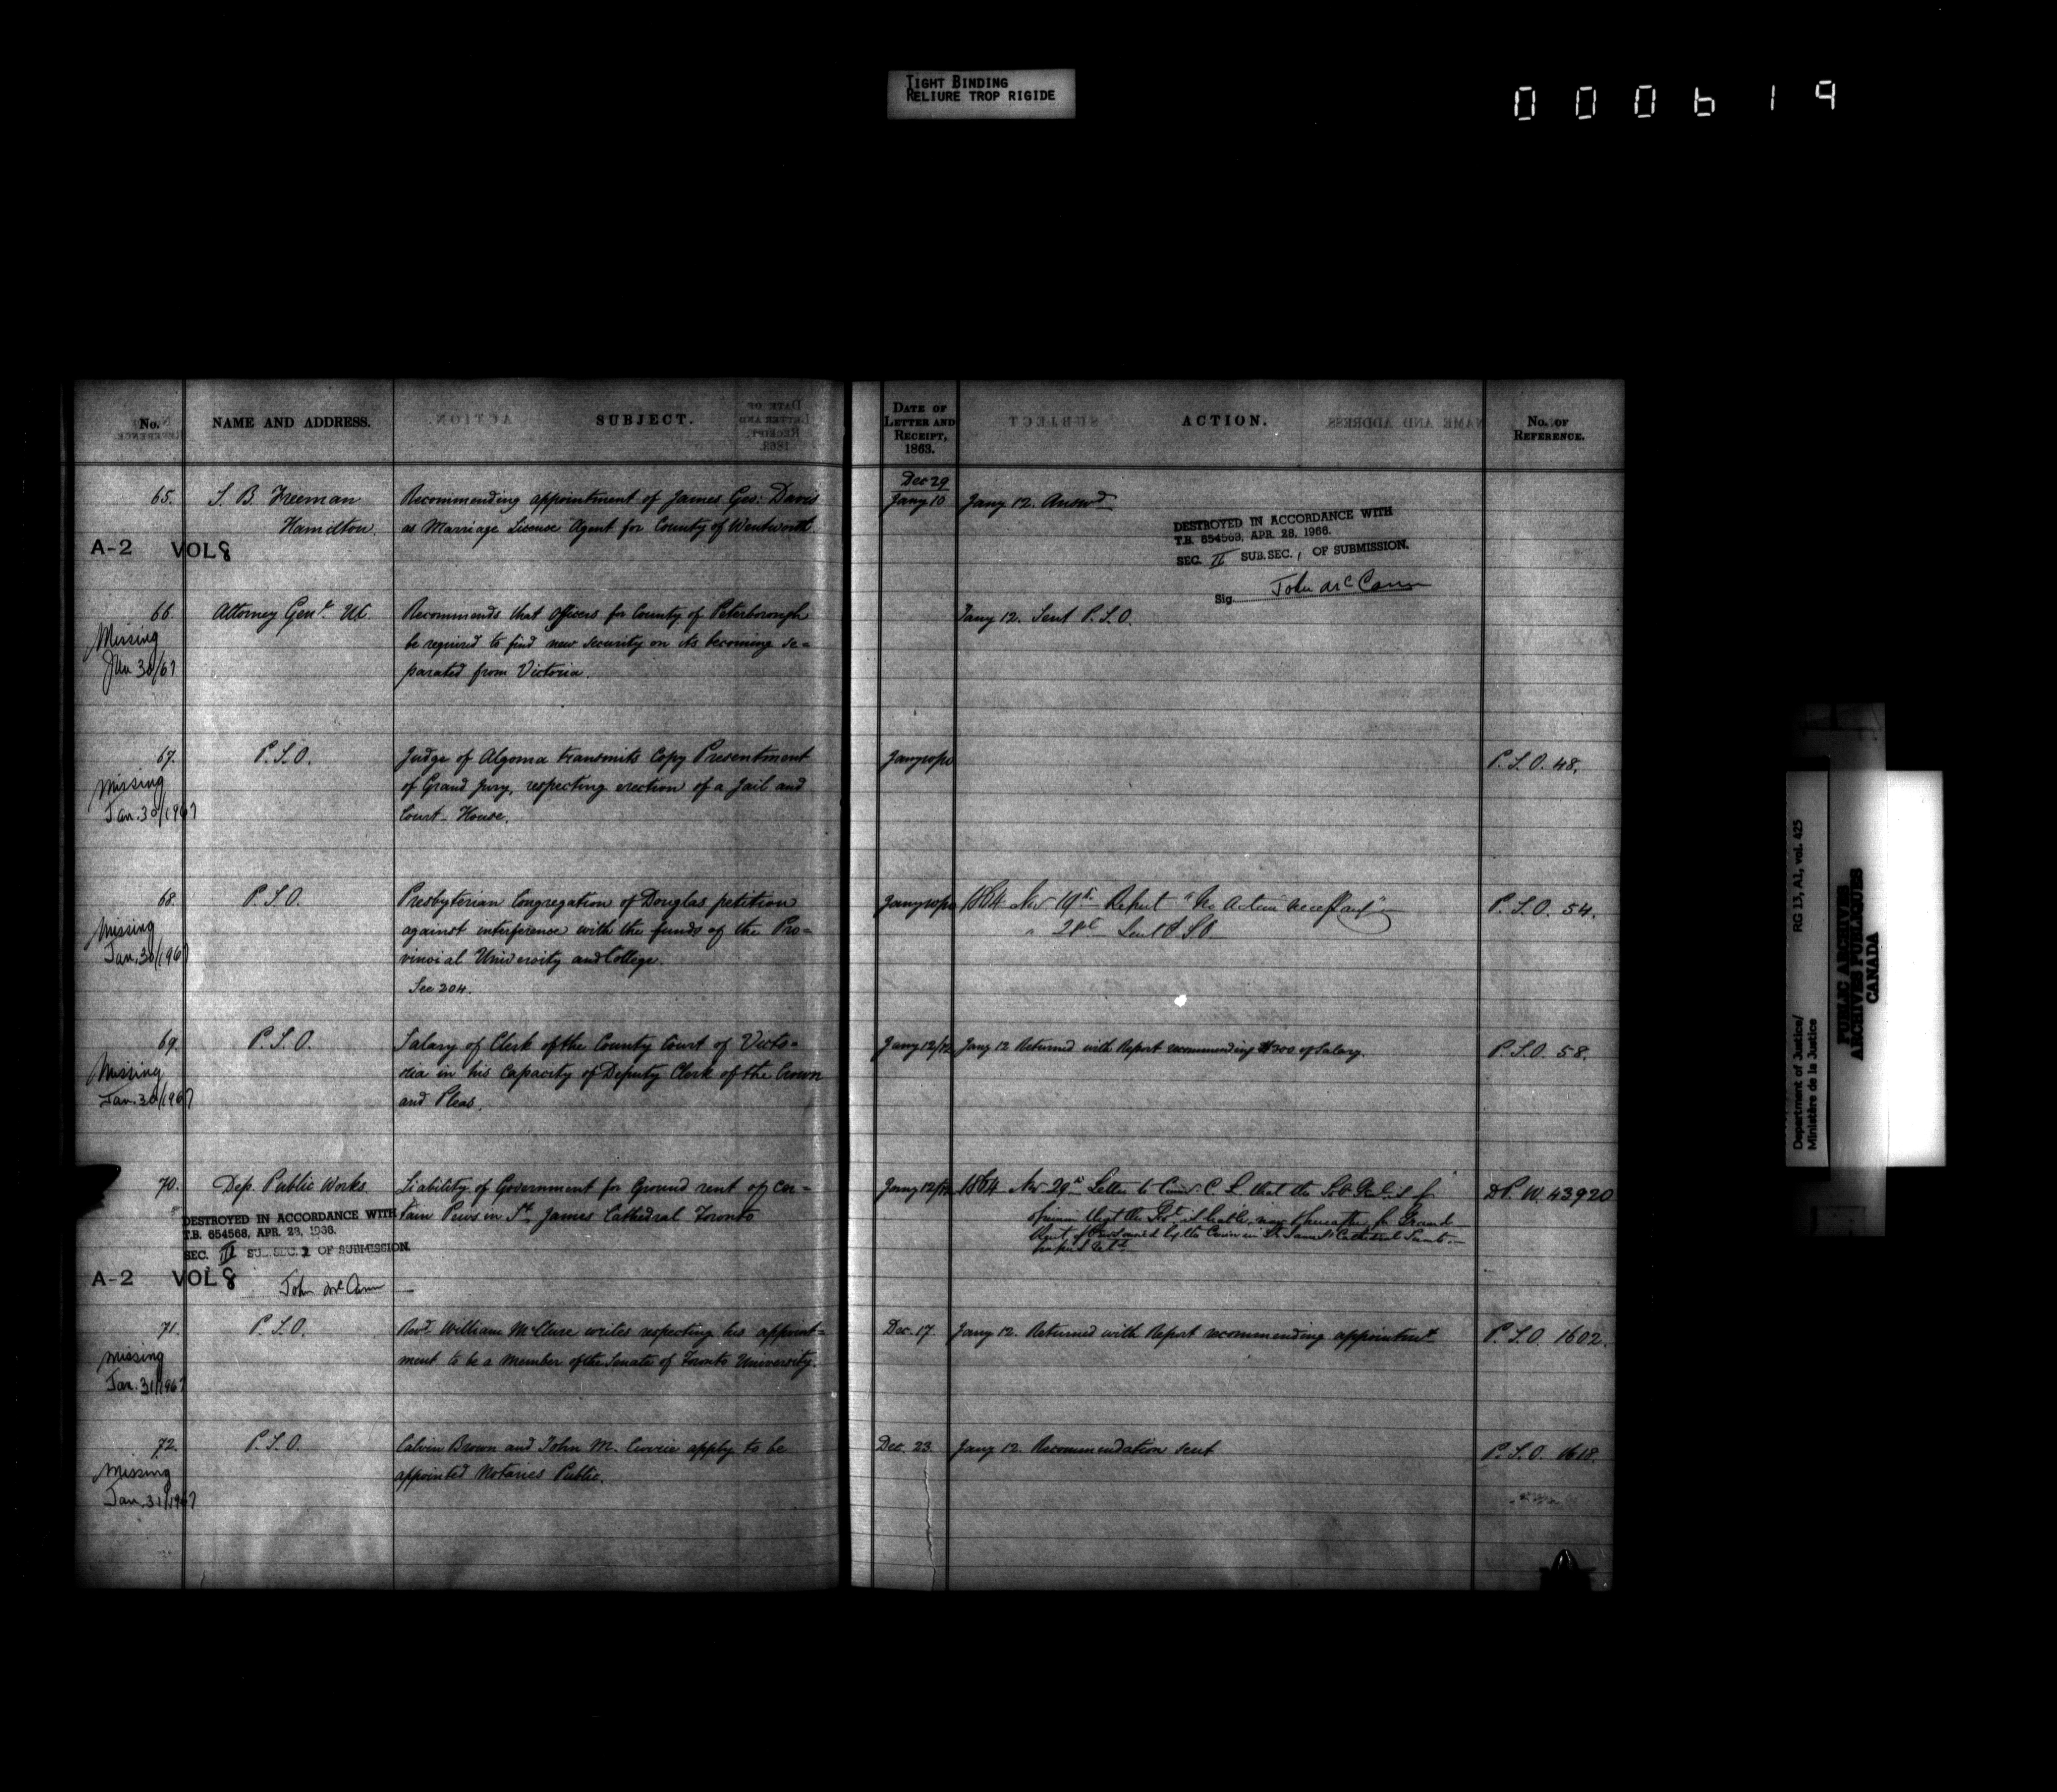 TIGHT BINDING
RELIURE TROP RIGIDE
000619
No.
NAME AND ADDRESS.
SUBJECT.
DATE OF
LETTER AND
RECEIPT,
1863.
ACTION.
No. OF
REFERENCE.
65.
S. B. Freeman
Hamilton
Recommending appointment of James Geo: Davis
as Marriage License Agent for County of Wentworth.
Dec 29
Jany 10
Jany 12. Answd
A-2 VOL 8
DESTROYED IN ACCORDANCE WITH
T.B. 654568, APR. 28, 1966.
SEC. II SUB.SEC. 1 OF SUBMISSION.
Sig. John McCann
66.
Missing
Jan 30/67
Attorney Genl. UC
Recommends that Officers for County of Peterborough
be required to find new security on its becoming se=
parated from Victoria.
Jany 12. Sent P.S.O.
67.
Missing
Jan. 30/1967
P.S.O.
Judge of Algoma transmits Copy Presentment
of Grand Jury, respecting erection of a Jail and
Court-House.
P.S.O. 48.
68.
Missing
Jan. 30/1967
P.S.O.
Presbyterian Congregation of Douglas petition
against interference with the funds of the Pro=
vincial University and College.
See 204.
1864 Nov 19th Report "No Action necessary"
P.S.O. 54.
69.
Missing
Jan. 30/1967
P.S.O.
Salary of Clerk of the County Court of Victo=
ria in his Capacity of Deputy Clerk of the Crown
and Pleas.
Jany 12/12
Jany 12 Returned with Report recommending $200 of Salary.
P.S.O. 58.
70.
Dep. Public Works
Liability of Government for Ground rent of cer=
tain Pews in St. James Cathedral Toronto
Jany 12/12
1864 Nov 29th Letter to C L that the
opinion that the is liable for Ground
Rent of Pews owned by the Crown in St James Cathedral
D.P.W. 43920
DESTROYED IN ACCORDANCE WITH
T.B. 654568, APR. 28, 1966.
SEC. III SUB.SEC. 2 OF SUBMISSION.
A-2 VOL 8
John McCann
71.
Missing
Jan. 31/1967
P.S.O.
Revd. William McClure writes respecting his appoint=
ment to be a member of the Senate of Toronto University.
Dec. 17.
Jany 12. Returned with Report recommending appointmt.
P.S.O. 1602.
72.
Missing
Jan. 31/1967
P.S.O.
Calvin Brown and John M. Currie apply to be
appointed Notaries Public.
Dec. 23
Jany 12. Recommendation sent
P.S.O. 1618.
Department of Justice/
Ministère de la Justice
RG 13, A1, vol. 425
PUBLIC ARCHIVES
ARCHIVES PUBLIQUES
CANADA